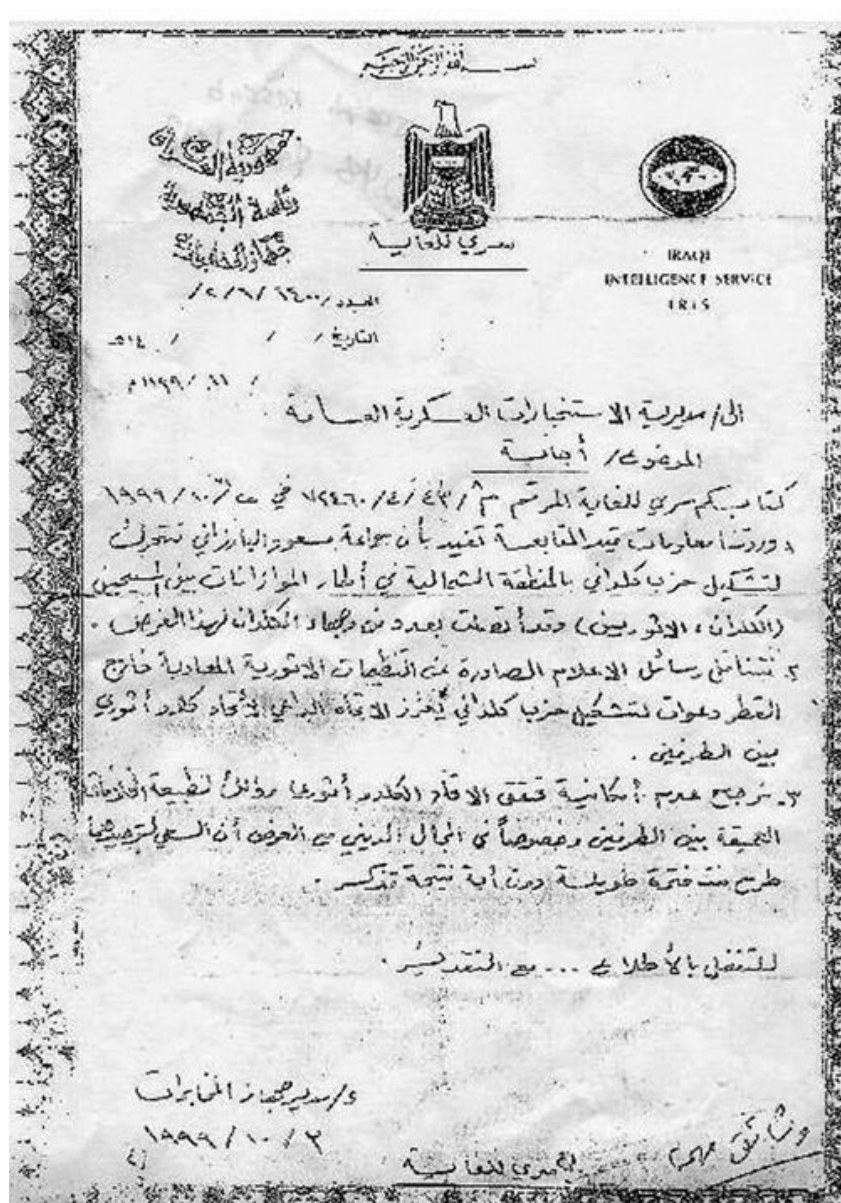 بسم الله الرحمن الرحيم
جمهورية العراق
رئاسة الجمهورية
جهاز المخابرات
سري للغاية
IRAQI
INTELLIGENCE SERVICE
I R I S
العدد /
التاريخ / / / ١٤هـ
الى/ مديرية الاستخبارات العسكرية العامة
الموضوع/ أجابة
كتابكم سري للغاية المرقم في ١٩٩٩/١٠/
وردتنا معلومات قيد المتابعة تفيد بأن جماعة مسعود البارزاني تتحرك
لتشكيل حزب كلداني بالمنطقة الشمالية في أطار الموازانات بين المسيحيين
(الكلدان ، الاثوريين) وقد أتصلت بعدد من وجهاء الكلدان لهذا الغرض .
٢. تتناقل وسائل الاعلام الصادرة عن التنظيمات الاثورية المعادية خارج
القطر دعوات لتشكيل حزب كلداني يعزز الاتجاه الداعي لأتحاد كلدو أثوري
بين الطرفين .
٣. نرجح عدم أمكانية تحقق الاتحاد الكلدو أثوري وذلك لطبيعة الخلافات
العميقة بين الطرفين وخصوصاً في المجال الديني مع العرض أن السعي لتوحيدهما
طرح منذ فترة طويلة دون أية نتيجة تذكر .
للتفضل بالأطلاع ... مع التقدير .
ع/مدير جهاز المخابرات
١٩٩٩/١٠/٣
سري للغاية
وثائق مهمة